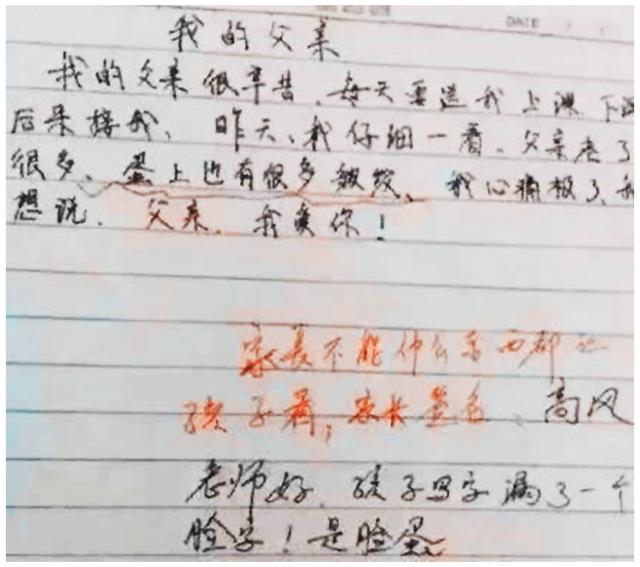 DATE
我的父亲
我的父亲很辛苦,每天要送我上课 下课
后来接我、昨天、我仔细一看、父亲老了
很多、蛋上也有很多皱纹、我心痛极了、我
想说、父亲、我爱你!
家长不能什么东西都让
孩子看,家长签名、高风
老师好、孩子写字漏了一个
脸字!是脸蛋